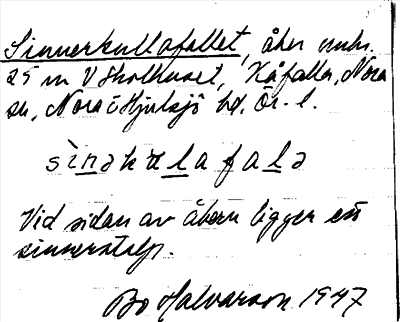 Sinnerkullafallet, åker omkr.
25 m V Skolhuset, Kåfalla, Nora
sn, Nora o Hjulsjö hd, Ör. l.
sìnəkulafalə
Vid sidan av åkern ligger en
sinnerstalp.
Bo Halvarson 1947